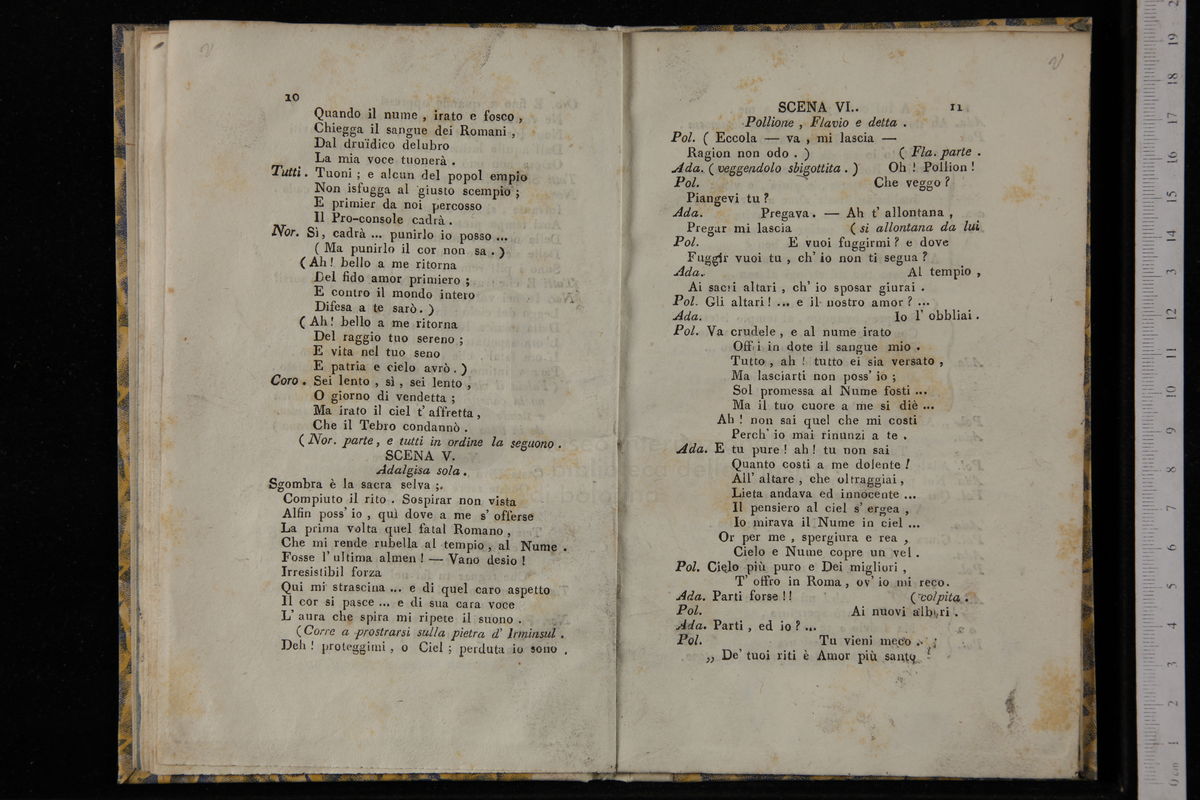 10
Quando il nume , irato e fosco ,
Chiegga il sangue dei Romani ,
Dal druïdico delubro
La mia voce tuonerà .
Tutti . Tuoni ; e alcun del popol empio
Non isfugga al giusto scempio ;
E primier da noi percosso
Il Pro-console cadrà .
Nor. Sì, cadrà ... punirlo io posso ...
( Ma punirlo il cor non sa . )
( Ah! bello a me ritorna
Del fido amor primiero ;
E contro il mondo intero
Difesa a te sarò. )
( Ah! bello a me ritorna
Del raggio tuo sereno ;
E vita nel tuo seno
E patria e cielo avrò . )
Coro . Sei lento , sì , sei lento ,
O giorno di vendetta ;
Ma irato il ciel t' affretta ,
Che il Tebro condannò .
( Nor. parte, e tutti in ordine la seguono .
SCENA V.
Adalgisa sola .
Sgombra è la sacra selva ;.
Compiuto il rito . Sospirar non vista
Alfin poss' io , quì dove a me s' offerse
La prima volta quel fatal Romano ,
Che mi rende rubella al tempio , al Nume .
Fosse l' ultima almen ! — Vano desio !
Irresistibil forza
Qui mi strascina ... e di quel caro aspetto
Il cor si pasce ... e di sua cara voce
L' aura che spira mi ripete il suono .
( Corre a prostrarsi sulla pietra d' Irminsul .
Deh ! proteggimi , o Ciel ; perduta io sono .
SCENA VI.. 11
Pollione , Flavio e detta .
Pol. ( Eccola — va , mi lascia —
Ragion non odo . ) ( Fla. parte .
Ada. ( veggendolo sbigottita . ) Oh ! Pollion !
Pol. Che veggo ?
Piangevi tu ?
Ada. Pregava . — Ah t' allontana ,
Pregar mi lascia ( si allontana da lui
Pol. E vuoi fuggirmi ? e dove
Fuggir vuoi tu , ch' io non ti segua ?
Ada. Al tempio ,
Ai sacri altari , ch' io sposar giurai .
Pol. Gli altari ! ... e il nostro amor ? ...
Ada. Io l' obbliai .
Pol. Va crudele , e al nume irato
Offri in dote il sangue mio .
Tutto , ah ! tutto ei sia versato ,
Ma lasciarti non poss' io ;
Sol promessa al Nume fosti ...
Ma il tuo cuore a me si diè ...
Ah ! non sai quel che mi costi
Perch' io mai rinunzi a te .
Ada. E tu pure ! ah ! tu non sai
Quanto costi a me dolente !
All' altare , che oltraggiai ,
Lieta andava ed innocente ...
Il pensiero al ciel s' ergea ,
Io mirava il Nume in ciel ...
Or per me , spergiura e rea ,
Cielo e Nume copre un vel .
Pol. Cielo più puro e Dei migliori ,
T' offro in Roma , ov' io mi reco.
Ada. Parti forse !! ( colpita .
Pol. Ai nuovi albori .
Ada. Parti , ed io ? ...
Pol. Tu vieni meco .
„ De' tuoi riti è Amor più santo